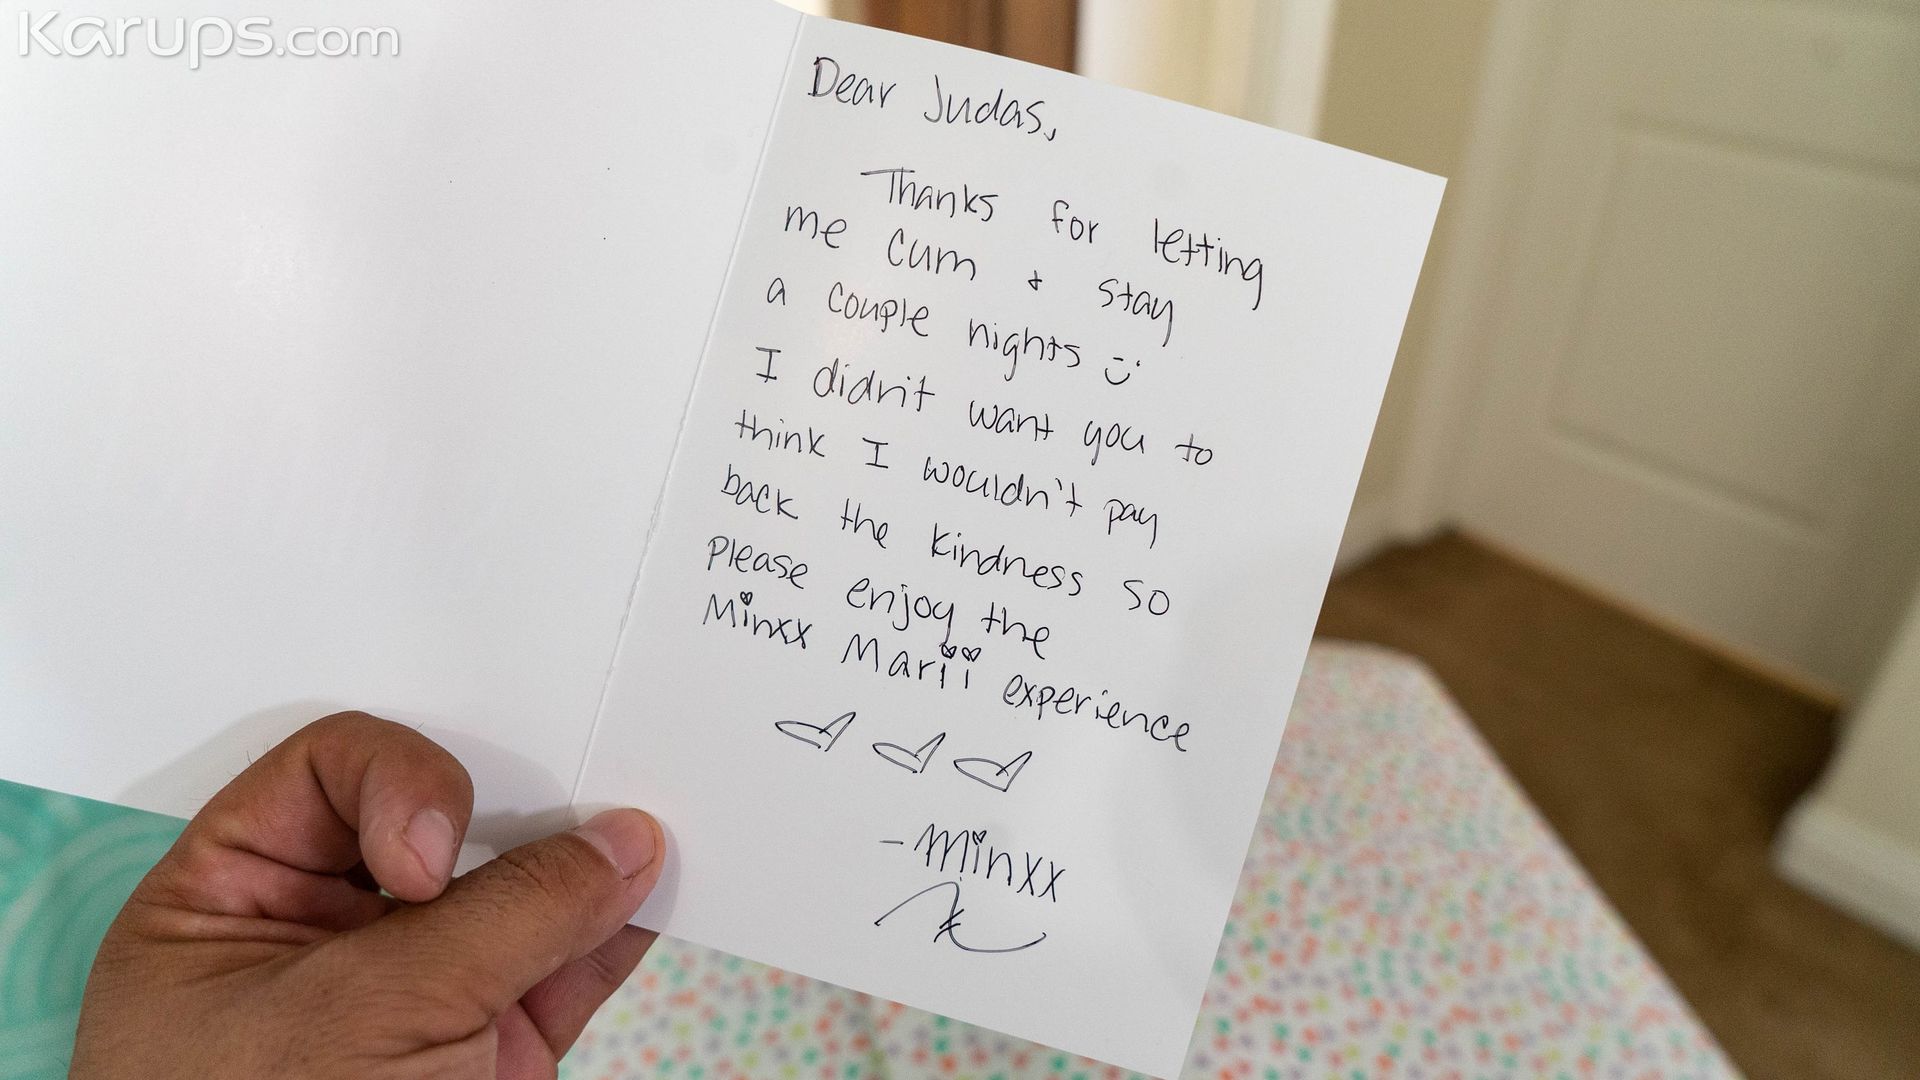 Karups.com
Dear Judas,
Thanks for letting
me cum + stay
a couple nights :)
I didn't want you to
think I wouldn't pay
back the kindness so
please enjoy the
Minxx Marii experience
-Minxx